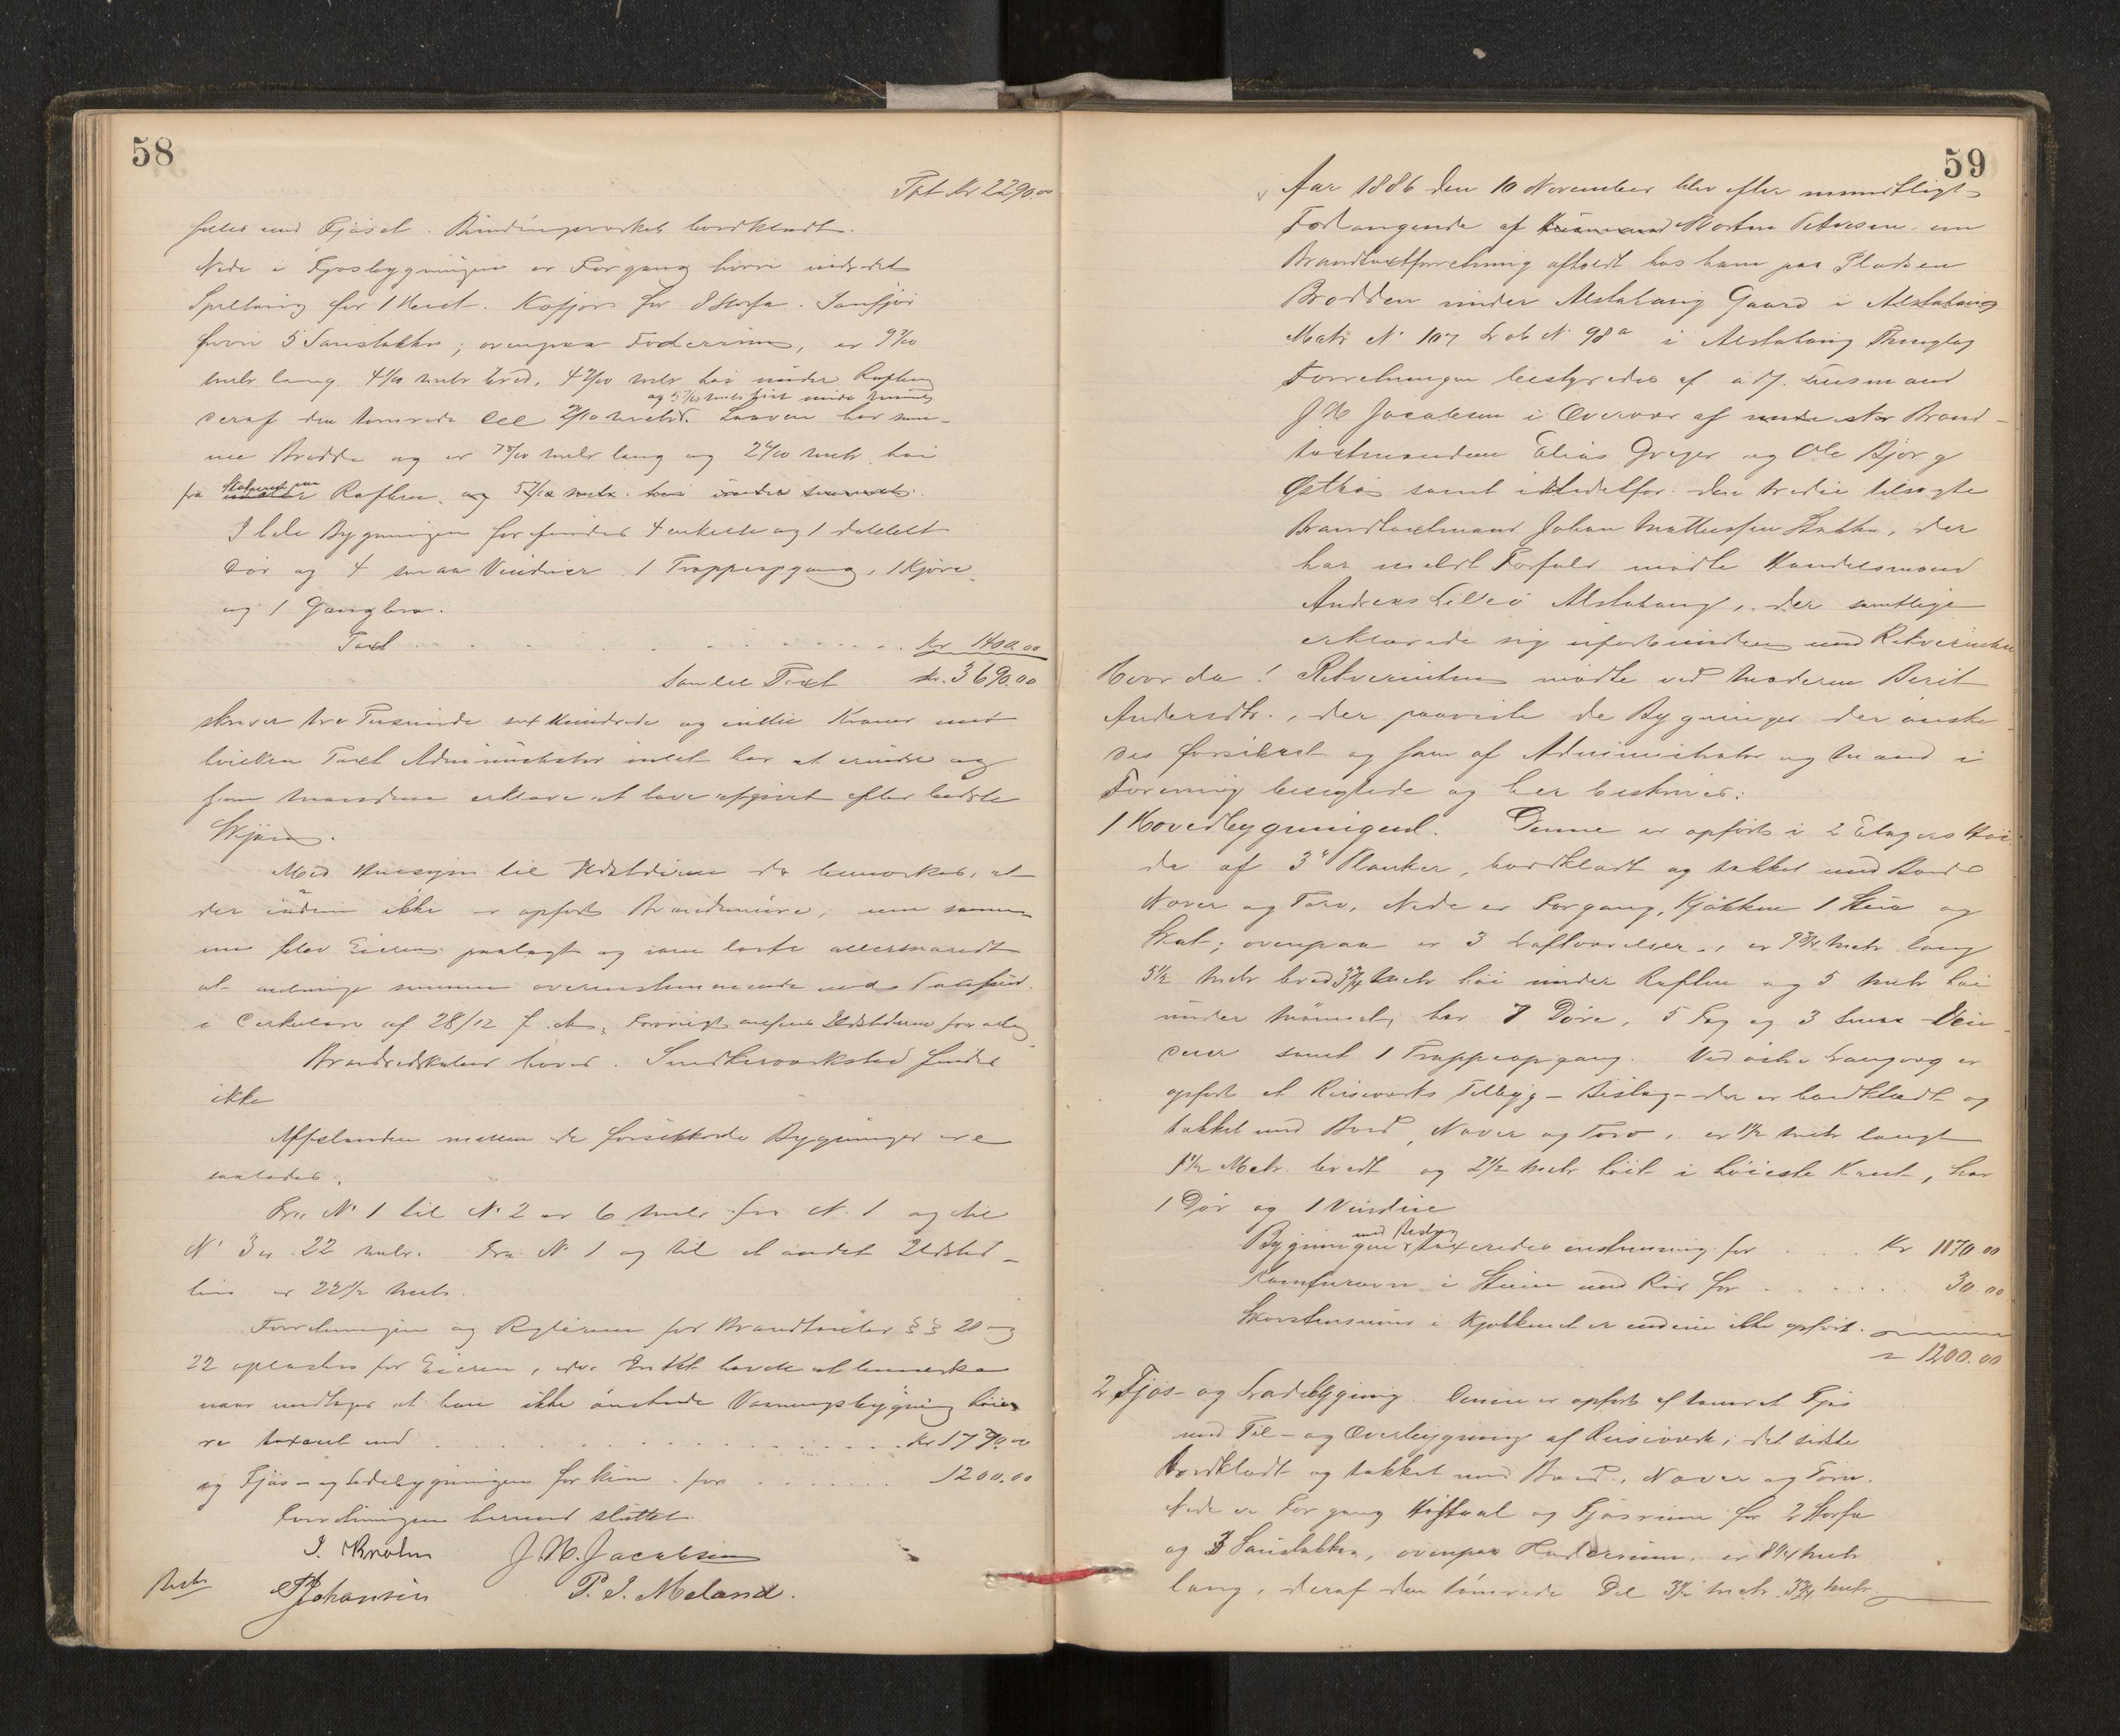 58
Tpt Kr 2290.00
fælles med Fjøset. Bindingsværket bordklædt.
Nede i Fjøsbygningen er Forgang hvori indredet
Spiltoug for 1 Hest. Kofjøs for 8 Storfæ. Saufjøs
hvori 5 Saustakker; ovenpaa Foderrum, er 9 7/10
metr lang 4 4/10 metr bred, 4 2/10 metr høi under Raften
og 5 7/10 metr høit under Mønnet
deraf den tømrede Del metr. Laaven har sam-
me Bredde og er 7 8/10 metr lang og 2 6/10 metr høi
fra Raften og 5 7/10 metr høi under mønnet.
I hele Bygningen forefindes 4 enkelte og 1 dobbelt
Dør og 4 smaa Vinduer 1 Trappeopgang, 1 Kjøre
og 1 Gangbro.
Taxt . . . . . . . . kr 1400.00
Samlet Taxt Kr. 3690.00
skriver tre Tusinde sex Hundrede og nitti Kroner mod
hvilken Taxt Administrator intet har at erindre og
som Mændene erklære at have afgivet efter bedste
Skjøn.
Med Hensyn til Ildstederne da bemærkes, at
der endnu ikke er opført Brandmure, men samme
blev Eieren paalagt og som lovte allersnarest
at anbringe samme overensstemmende med
i Cirkulære af 28/12 f. A. Forøvrigt ansees Ildstederne forsvarlig
Brandredskaber haves. Snedkerværksted findes
ikke
Afstanden mellem de forsikrede Bygninger ere
saaledes:
Fra No 1 til No 2 er 6 metr fra No 1 og til
No 3 er 22 metr. Fra No 1 og til et andet Ildsted-
hus er 22 1/2 metr.
Forretningen og Reglerne for Brandtaxter §§ 20 og
22 oplæstes for Eieren, der Intet havde at bemærke
naar undtages at han ikke ønskede Vaaningsbygning høie-
re taxeret end . . . . . . . . . Kr 1790.00
og Fjøs- og Ladebygningen for kun for . . . . . 1200.00
Forretningen hermed sluttet.
J. Brholm J. N. Jacobsen
Johansen P. J. Meland.
59
Aar 1886 den 10 November blev efter mundtligt
Forlangende af Husmand Morten Petersen en
Brandtaxtforretning afholdt hos ham paa Pladsen
Brodden under Alstahaug Gaard i Alstahaug
Matr No 107 Løb No 98a i Alstahaug Thinglag
Forretningen bestyredes af adj. Lensmand
J N Jacobsen i Overvær af Brand-
taxtmændene Elias Greger og Ole Bjørg
samt istedetfor den tredie tilsagte
Brandtaxtmand Johan Mathessen Stokke, der
har meldt Forfald mødte Handelsmand
Andreas Lilleø Alstahaug, der samtlige
erklærede sig uforbunden med Rekvirenten
Hvor da! Rekvirenten mødte ved Moderen Berit
Andersdtr., der paaviste de Bygninger der ønske-
des forsikret og som af Administrator og Mænd i
Forening besigtede og her beskrives:
1 Hovedbygningen. Denne er opført i 2 Etagers Høi-
de af 3" Planker, bordklædt og tækket med Bord
Næver og Torv, Nede er Forgang, Kjøkken 1 Stue og
Skot; ovenpaa er 3 Loftsværelser, er 9 3/4 Metr lang
5 1/2 Metr bred 3 3/4 Metr høi under Raften og 5 metr høi
under Mønnet, har 7 Døre, 5 Fag og 3 smaa Vin-
duer samt 1 Trappeopgang. Ved østre Langvæg er
opført et Reisværks Tilbyg - Bislag - der er bordklædt og
tækket med Bord, Næver og Torv, er 1 1/2 metr langt
1 1/2 Metr bredt og 2 1/2 metr høit i høieste Kant, har
1 Dør og 1 Vindue
med Bislag
Bygningen taxeredes enstemmig for . . . . Kr 1170.00
Komfurovn i Stuen med Rør for . . . . . . 30.00
Skorstensmur i Kjøkkenet er endnu ikke opført.
1200.00
2 Fjøs- og Ladebygning. Denne er opført af tømret Fjøs
med Til- og Overbygning af Reisværk; det sidste
Bordklædt og tækket med Bord, Næver og Torv.
Nede er Forgang og Fjøsrum for 2 Storfæ
og 3 Saustakker, ovenpaa Foderrum, er 8 1/4 Metr
lang, deraf den tømrede Del 3 1/2 Metr. 3 3/4 metr